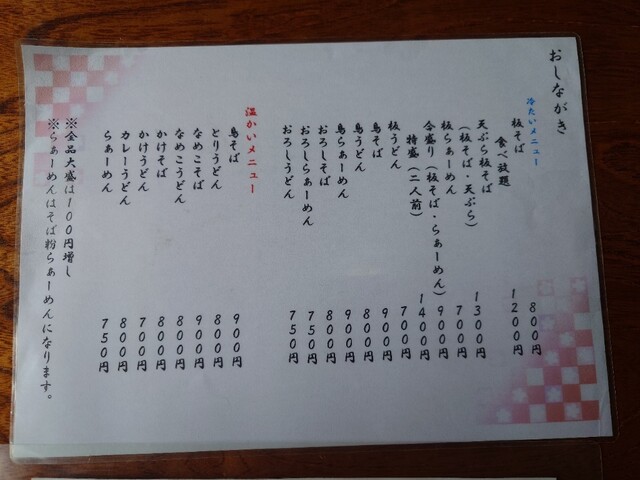 おしながき
冷たいメニュー
板そば 800円
食べ放題 1200円
天ぷら板そば 1300円
(板そば・天ぷら)
板らぁーめん 700円
合盛り(板そば・らぁーめん) 900円
特盛(二人前) 1400円
板うどん 700円
鳥そば 900円
鳥うどん 800円
鳥らぁーめん 900円
おろしそば 800円
おろしらぁーめん 750円
おろしうどん 750円
温かいメニュー
鳥そば 900円
とりうどん 800円
なめこそば 900円
なめこうどん 800円
かけそば 800円
かけうどん 700円
カレーうどん 800円
らぁーめん 750円
※全品大盛は100円増し
※らぁーめんはそば粉らぁーめんになります。